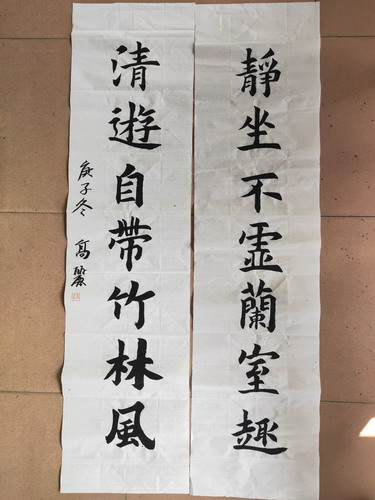 靜坐不虛蘭室趣
清遊自帶竹林風
庚子冬 高麗